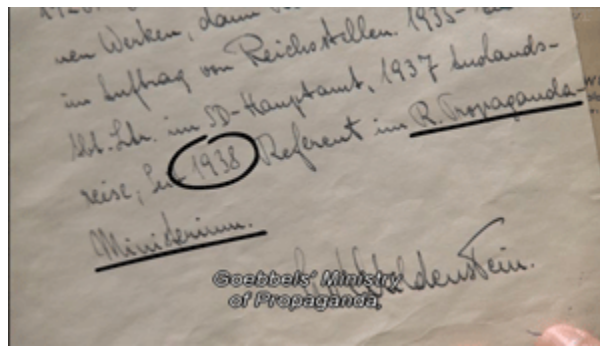 nen Werken, dann
im Auftrag von Reichsstellen. 1935-
Abt.Ltr. im SD-Hauptamt, 1937 Auslands-
reise, Seit 1938 Referent im R. Propaganda-
Ministerium.
Goebbels' Ministry
of Propaganda,